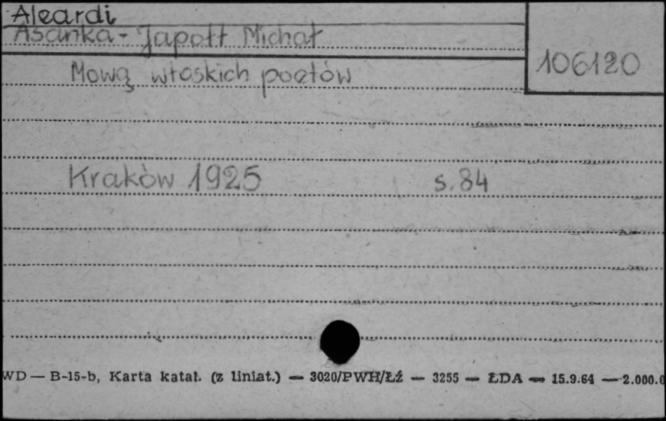 Aleardi
Asanka-Japołł Michał
106120
Mową włoskich poetów
Kraków 1925 s. 84
WD — B-15-b, Karta katal. (z liniat.) — 3020/PWH/Łź — 3255 — ŁDA — 15.9.64 — 2.000.0